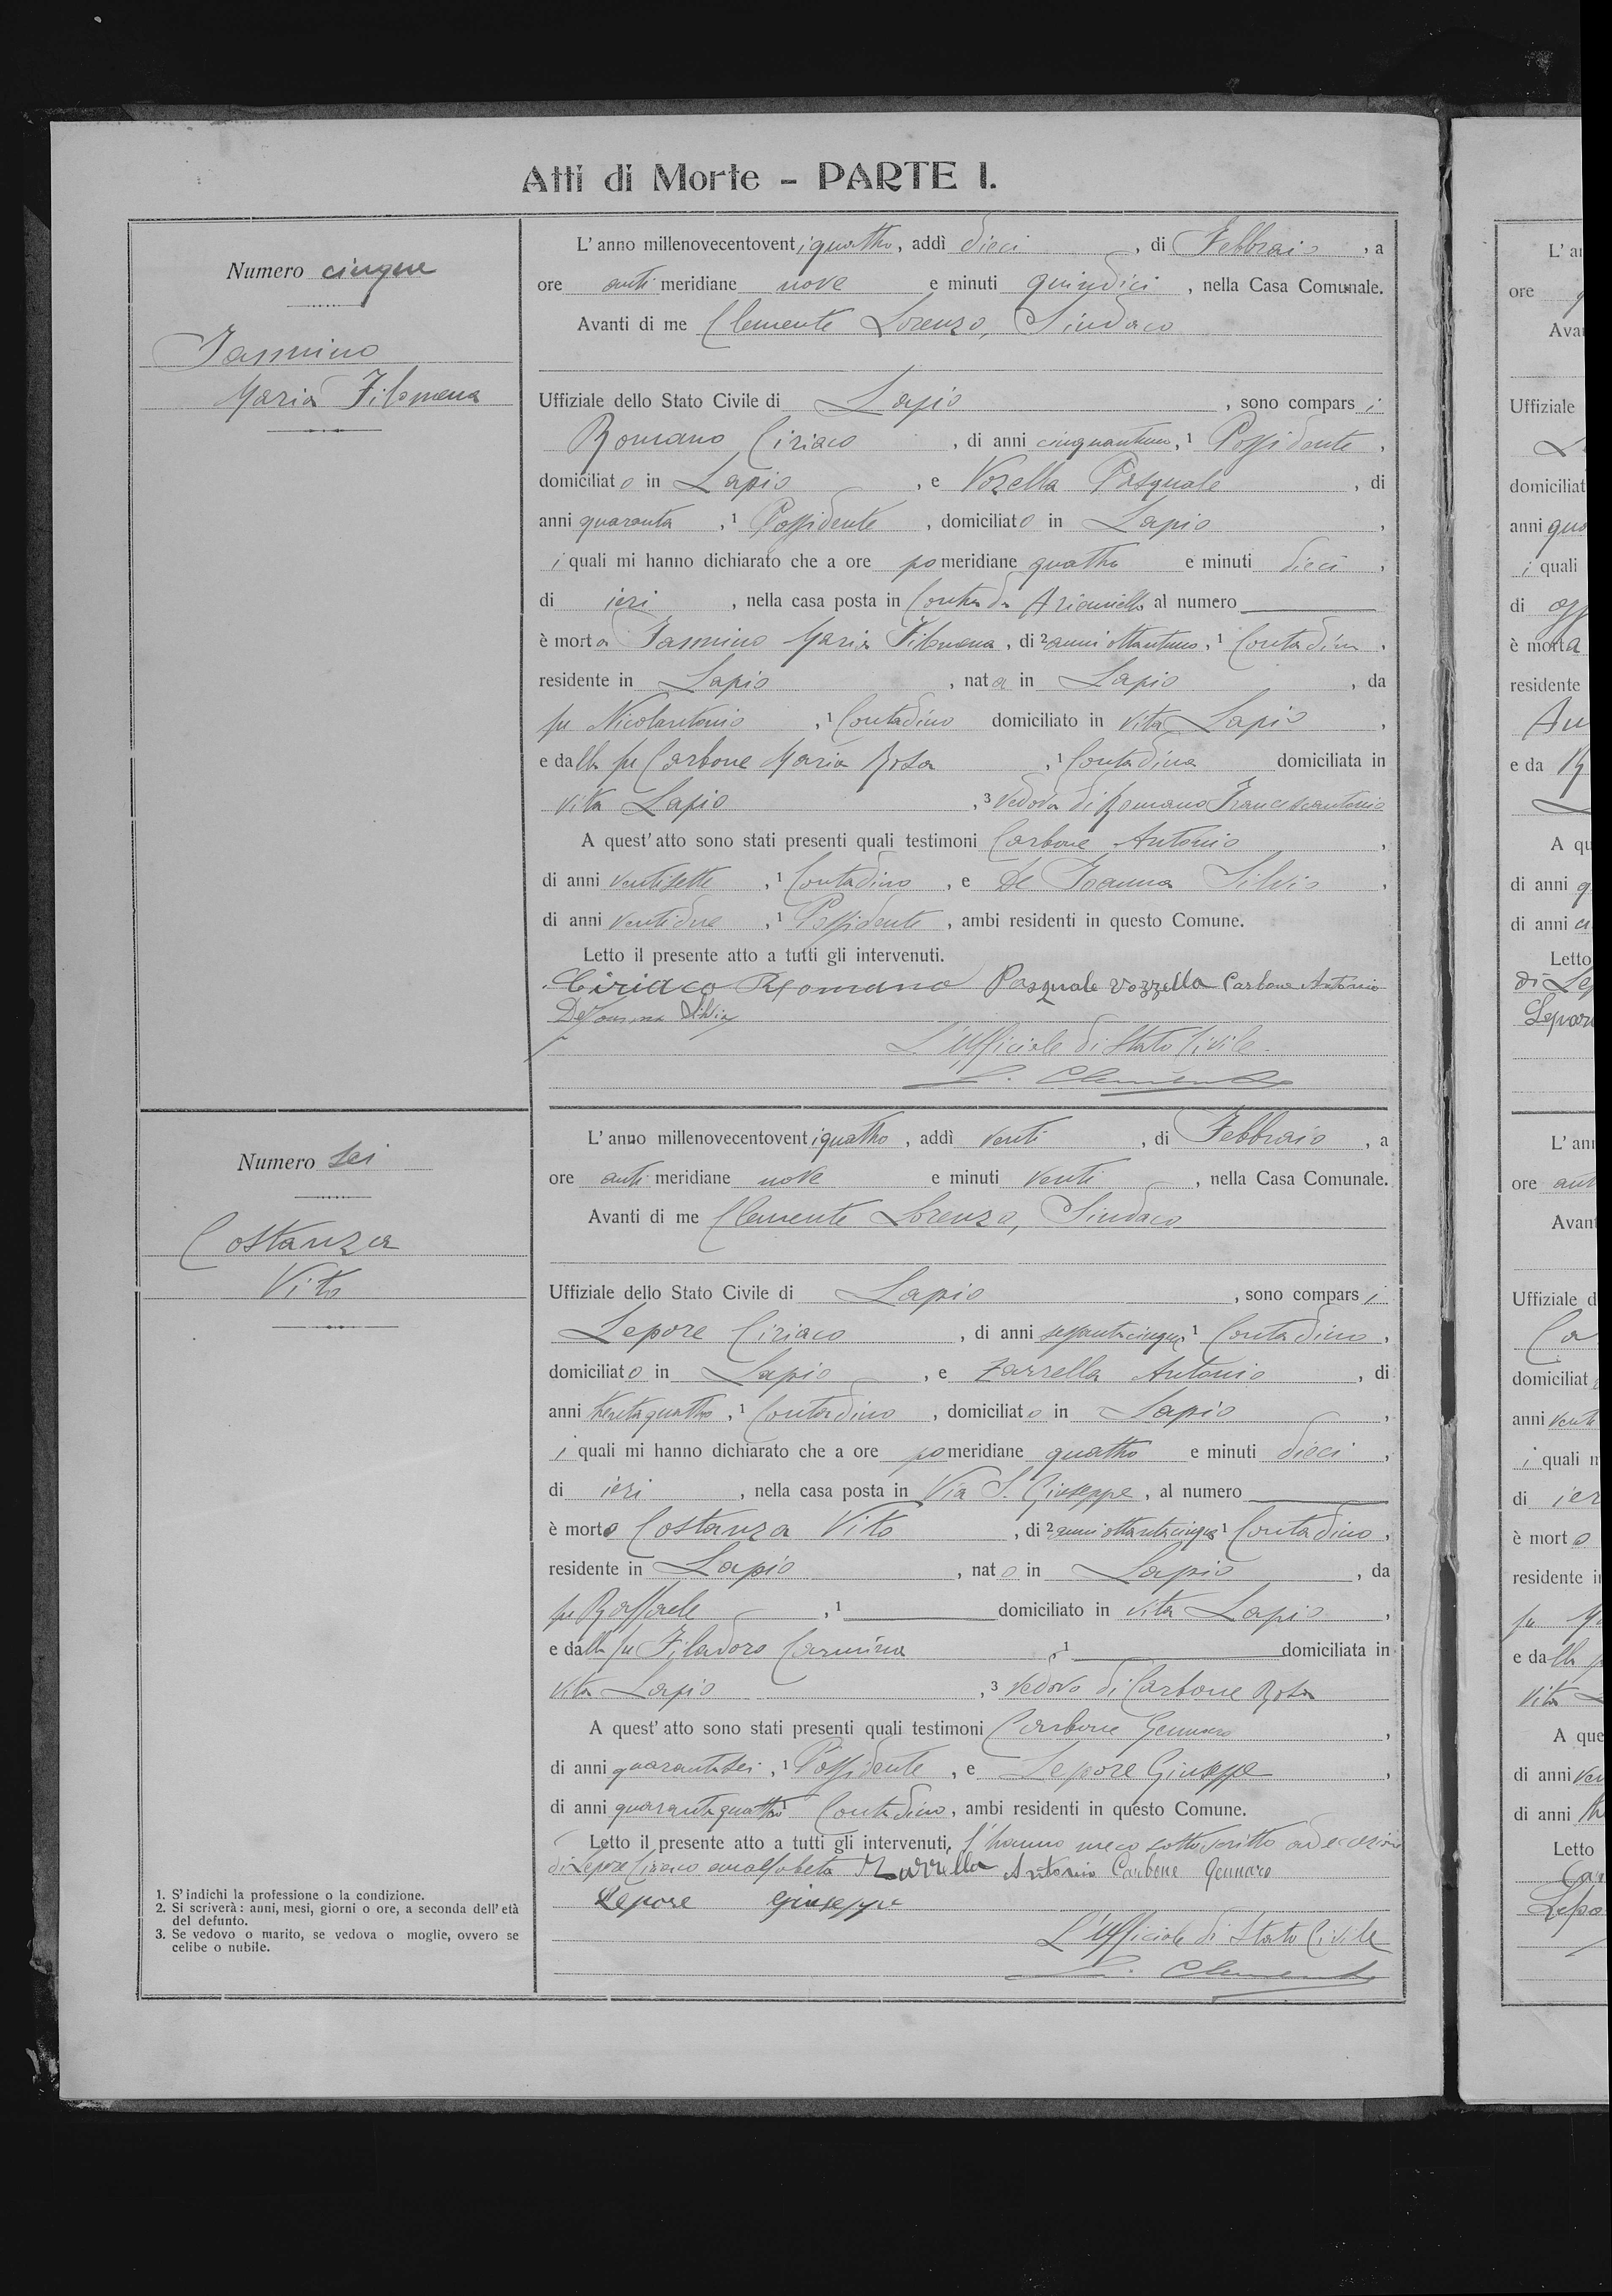 Atti di Morte - PARTE I.
Numero cinque
Iannino
Maria Filomena
L'anno millenovecentoventiquattro, addì dieci, di Febbraio, a
ore antimeridiane nove e minuti quindici, nella Casa Comunale.
Avanti di me Clemente Lorenzo, Sindaco
Uffiziale dello Stato Civile di Lapio, sono comparsi
Romano Ciriaco, di anni cinquantuno, 1 Possidente,
domiciliato in Lapio, e Vozella Pasquale, di
anni quaranta, 1 Possidente, domiciliato in Lapio,
i quali mi hanno dichiarato che a ore pomeridiane quattro e minuti dieci,
di ieri, nella casa posta in Contrada Arianiello al numero
è morta Iannino Maria Filomena, di 2 anni ottantuno, 1 Contadina,
residente in Lapio, nata in Lapio, da
fu Nicolantonio, 1 Contadino domiciliato in vita Lapio,
e dalla fu Carbone Maria Rosa, 1 Contadina domiciliata in
vita Lapio, 3 vedova di Romano Francescantonio
A quest'atto sono stati presenti quali testimoni Carbone Antonio,
di anni ventisette, 1 Contadino, e De Ioanna Silvio,
di anni ventidue, 1 Possidente, ambi residenti in questo Comune.
Letto il presente atto a tutti gli intervenuti.
Ciriaco Romano Pasquale Vozzella Carbone Antonio
De Ioanna Silvio
L'Ufficiale di Stato Civile
L. Clemente
Numero sei
Costanza
Vito
L'anno millenovecentoventiquattro, addì venti, di Febbraio, a
ore antimeridiane nove e minuti venti, nella Casa Comunale.
Avanti di me Clemente Lorenzo, Sindaco
Uffiziale dello Stato Civile di Lapio, sono comparsi
Lepore Ciriaco, di anni sessantacinque 1 Contadino,
domiciliato in Lapio, e Zarrella Antonio, di
anni trentaquattro, 1 Contadino, domiciliato in Lapio,
i quali mi hanno dichiarato che a ore pomeridiane quattro e minuti dieci,
di ieri, nella casa posta in Via S. Giuseppe, al numero
è morto Costanza Vito, di 2 anni ottantacinque 1 Contadino,
residente in Lapio, nato in Lapio, da
fu Raffaele, 1 domiciliato in vita Lapio,
e dalla fu Filadoro Carmina, 1 domiciliata in
vita Lapio, 3 vedovo di Carbone Rosa
A quest'atto sono stati presenti quali testimoni Carbone Gennaro,
di anni quarantasei, 1 Possidente, e Lepore Giuseppe,
di anni quarantaquattro 1 Contadino, ambi residenti in questo Comune.
Letto il presente atto a tutti gli intervenuti, l'hanno meco sottoscritto ad eccezione
di Lepore Ciriaco analfabeta Zarrella Antonio Carbone Gennaro
Lepore Giuseppe
L'Ufficiale di Stato Civile
L. Clemente
1. S'indichi la professione o la condizione.
2. Si scriverà: anni, mesi, giorni o ore, a seconda dell'età
del defunto.
3. Se vedovo o marito, se vedova o moglie, ovvero se
celibe o nubile.
L'an
ore
Avan
Uffiziale
domiciliat
anni qua
i quali
di ogg
è morta
residente
e da
A qu
di anni q
di anni
Letto
di Lep
Lepor
L'ann
ore ant
Avant
Uffiziale d
Ca
domiciliat
anni vent
i quali n
di ier
è morto
residente in
fu
e dalla
vita
A que
di anni ven
di anni
Letto
Car
Lepo